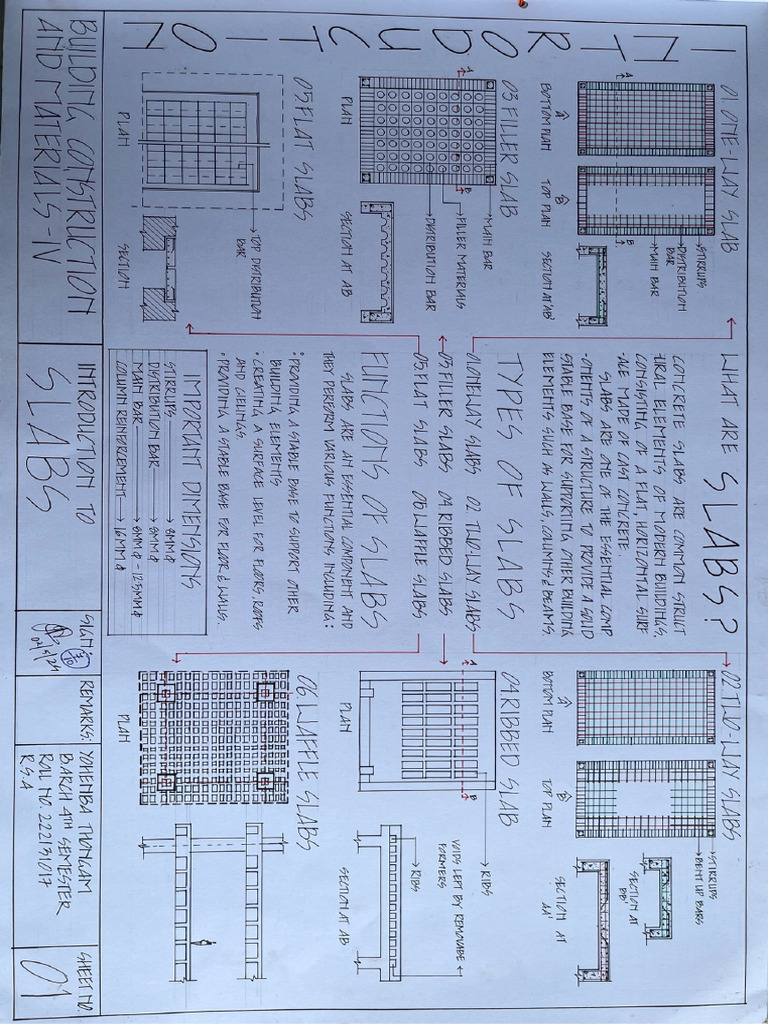 INTRODUCTION
01. ONE-WAY SLAB
BOTTOM PLAN
TOP PLAN
STIRRUPS
DISTRIBUTION
BAR
MAIN BAR
SECTION AT 'AB'
A
B
03. FILLER SLAB
PLAN
MAIN BAR
FILLER MATERIALS
DISTRIBUTION BAR
SECTION AT AB
A
B
05. FLAT SLABS
PLAN
TOP DISTRIBUTION
BAR
SECTION
WHAT ARE SLABS?
CONCRETE SLABS ARE COMMON STRUCT
TURAL ELEMENTS OF MODERN BUILDINGS,
CONSISTING OF A FLAT, HORIZONTAL SURF
ACE MADE OF CAST CONCRETE.
SLABS ARE ONE OF THE ESSENTIAL COMP
ONENTS OF A STRUCTURE TO PROVIDE A SOLID
STABLE BASE FOR SUPPORTING OTHER BUILDING
ELEMENTS SUCH AS WALLS, COLUMNS & BEAMS.
TYPES OF SLABS
01. ONE-WAY SLABS 02. TWO-WAY SLABS
03. FILLER SLABS 04. RIBBED SLABS
05. FLAT SLABS 06. WAFFLE SLABS
FUNCTIONS OF SLABS
SLABS ARE AN ESSENTIAL COMPONENT AND
THEY PERFORM VARIOUS FUNCTIONS, INCLUDING:
• PROVIDING A STABLE BASE TO SUPPORT OTHER
BUILDING ELEMENTS
• CREATING A SURFACE LEVEL FOR FLOORS, ROOFS
AND CEILINGS.
• PROVIDING A STABLE BASE FOR FLOOR & WALLS.
IMPORTANT DIMENSIONS
STIRRUPS → 8MM Φ
DISTRIBUTION BAR → 8MM Φ
MAIN BAR → 8MM Φ - 125MM Φ
COLUMN REINFORCEMENT → 16MM Φ
02. TWO-WAY SLABS
BOTTOM PLAN
TOP PLAN
STIRRUPS
BENT UP BARS
SECTION AT
'BB'
SECTION AT
'AA'
A
B
04 RIBBED SLAB
PLAN
A
B
RIBS
VOIDS LEFT BY REMOVABE
FORMERS
RIBS
SECTION AT AB
06. WAFFLE SLABS
PLAN
BUILDING CONSTRUCTION
AND MATERIALS - IV
INTRODUCTION TO
SLABS
SIGN:
REMARKS:
YOHENBA THONGAM
BARCH 4TH SEMESTER
ROLL NO. 222131017
R.S.A
SHEET NO.
01